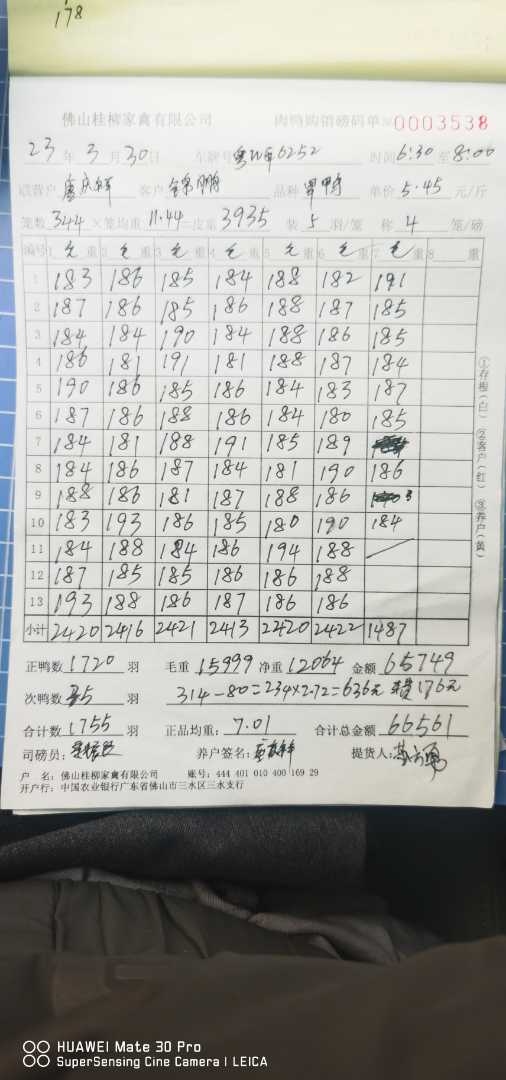 178
佛山桂柳家禽有限公司 肉鸭购销磅码单 № 0003538
23 年 3 月 30 日 车牌号 6252 时间 6:30 至 8:00
客户 锦鹏 品种 单价 5.45 元/斤
笼数 344 × 笼均重 11.44 = 皮重 3935 装 5 羽/笼 称 4 笼/磅
编号 1 毛 重 2 毛 重 3 毛 重 4 毛 重 5 毛 重 6 毛 重 7 毛 重 8 重
1 183 186 185 184 188 182 191
2 187 186 185 186 188 187 185
3 184 184 190 184 188 186 185
4 186 181 191 181 188 187 184
5 190 186 185 186 184 183 187
6 187 186 188 186 184 180 185
7 184 181 188 191 185 189
8 184 186 187 184 181 190 186
9 188 186 181 187 188 186
10 183 193 186 185 180 190 184
11 184 188 184 186 194 188
12 187 185 185 186 186 188
13 193 188 186 187 186 186
小计 2420 2416 2421 2413 2420 2422 1487
①存根(白) ②客户(红) ③养户(黄)
正鸭数 1720 羽 毛重 15999 净重 12064 金额 65749
次鸭数 羽 314-80=234×2.72=636元 176元
合计数 1755 羽 正品均重: 7.01 合计总金额 66561
司磅员: 养户签名: 提货人:
户 名: 佛山桂柳家禽有限公司 账号: 444 401 010 400 169 29
开户行: 中国农业银行广东省佛山市三水区三水支行
HUAWEI Mate 30 Pro
SuperSensing Cine Camera | LEICA